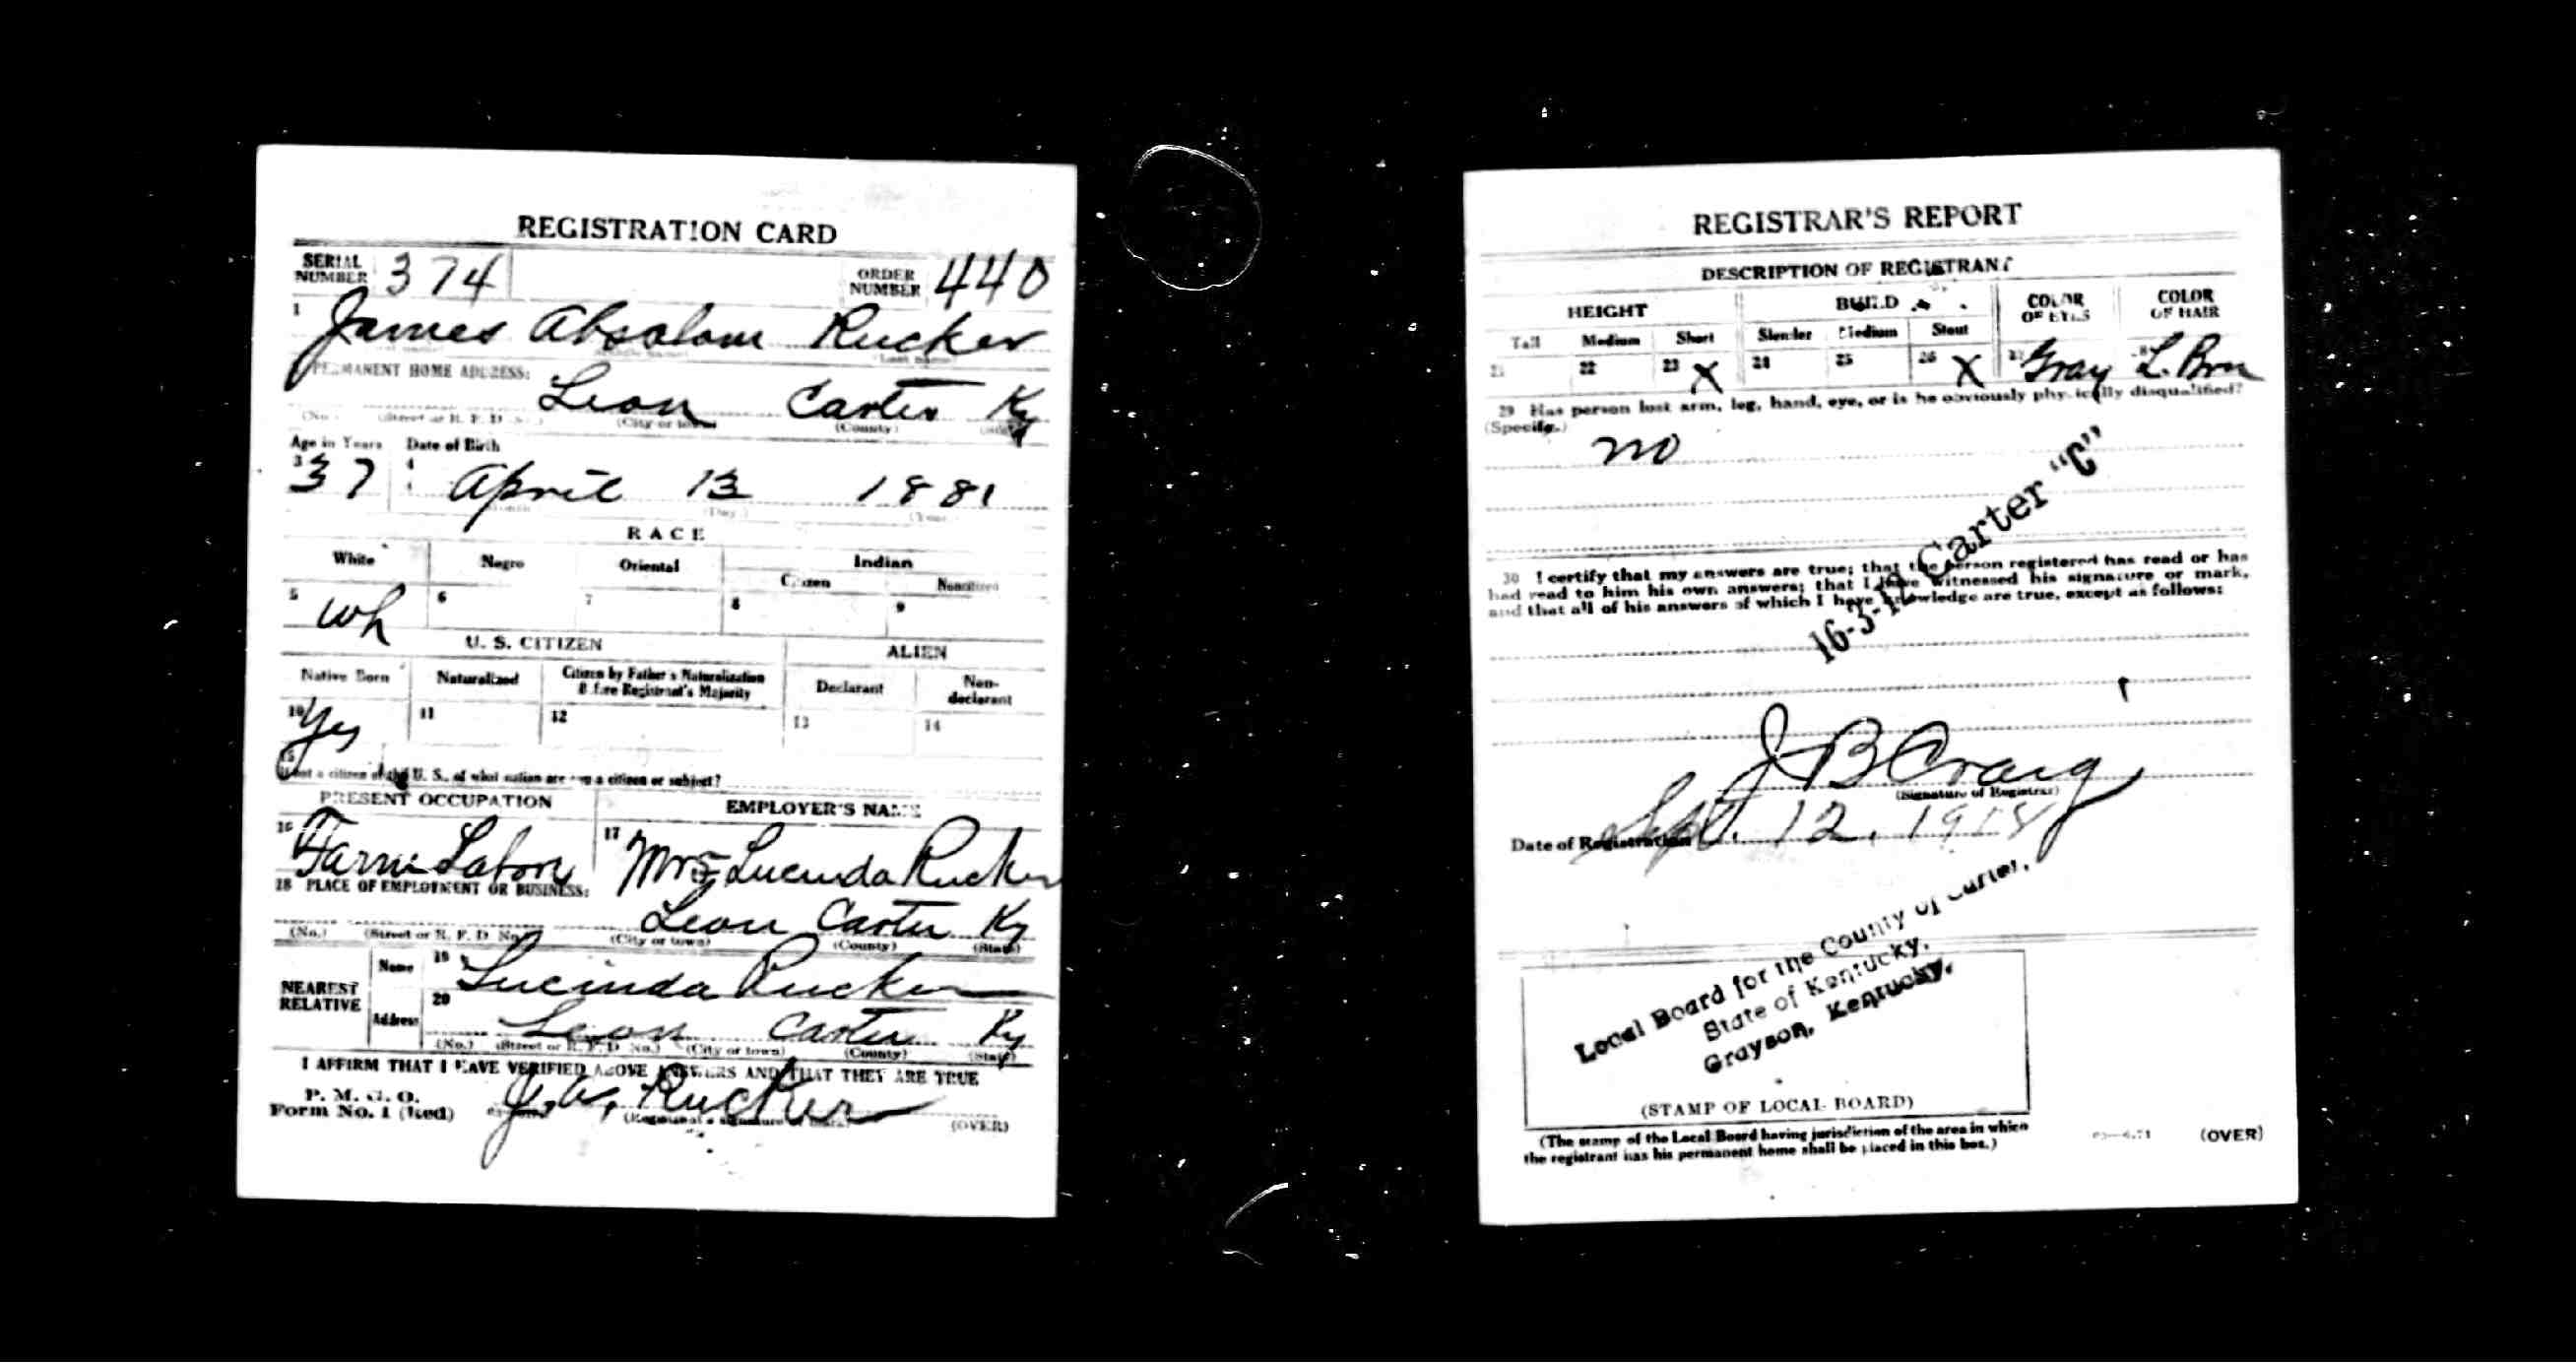 REGISTRATION CARD
SERIAL NUMBER 374 ORDER NUMBER 440
1 James Absalom Rucker
PERMANENT HOME ADDRESS:
Leon Carter Ky
(No.) (Street or R. F. D. No.) (City or town) (County) (State)
Age in Years Date of Birth
3 37 4 April 13 1881
(Month) (Day) (Year)
RACE
White Negro Oriental Indian
Citizen Noncitizen
5 Wh 6 7 8 9
U. S. CITIZEN ALIEN
Native Born Naturalized Citizen by Father's Naturalization Before Registrant's Majority Declarant Non-declarant
10 Yes 11 12 13 14
15
If not a citizen of the U. S., of what nation are you a citizen or subject?
PRESENT OCCUPATION EMPLOYER'S NAME
16 Farm Labor 17 Mrs Lucinda Rucker
18 PLACE OF EMPLOYMENT OR BUSINESS:
Leon Carter Ky
(No.) (Street or R. F. D. No.) (City or town) (County) (State)
NEAREST RELATIVE
Name 19 Lucinda Rucker
Address 20 Leon Carter Ky
(No.) (Street or R. F. D. No.) (City or town) (County) (State)
I AFFIRM THAT I HAVE VERIFIED ABOVE ANSWERS AND THAT THEY ARE TRUE
P. M. G. O.
Form No. 1 (Red) J. A. Rucker
(Registrant's signature or mark) (OVER)
REGISTRAR'S REPORT
DESCRIPTION OF REGISTRANT
HEIGHT BUILD COLOR OF EYES COLOR OF HAIR
Tall Medium Short Slender Medium Stout
21 22 23 X 24 25 26 X 27 Gray 28 L. Brn
29 Has person lost arm, leg, hand, eye, or is he obviously physically disqualified?
(Specify.)
no
16-3-12 Carter "C"
30 I certify that my answers are true; that the person registered has read or has
had read to him his own answers; that I have witnessed his signature or mark,
and that all of his answers of which I have knowledge are true, except as follows:
J B Craig
(Signature of Registrar)
Date of Registration Sept. 12, 1918
Local Board for the County of Carter,
State of Kentucky,
Grayson, Kentucky.
(STAMP OF LOCAL BOARD)
(The stamp of the Local Board having jurisdiction of the area in which
the registrant has his permanent home shall be placed in this box.)
(OVER)